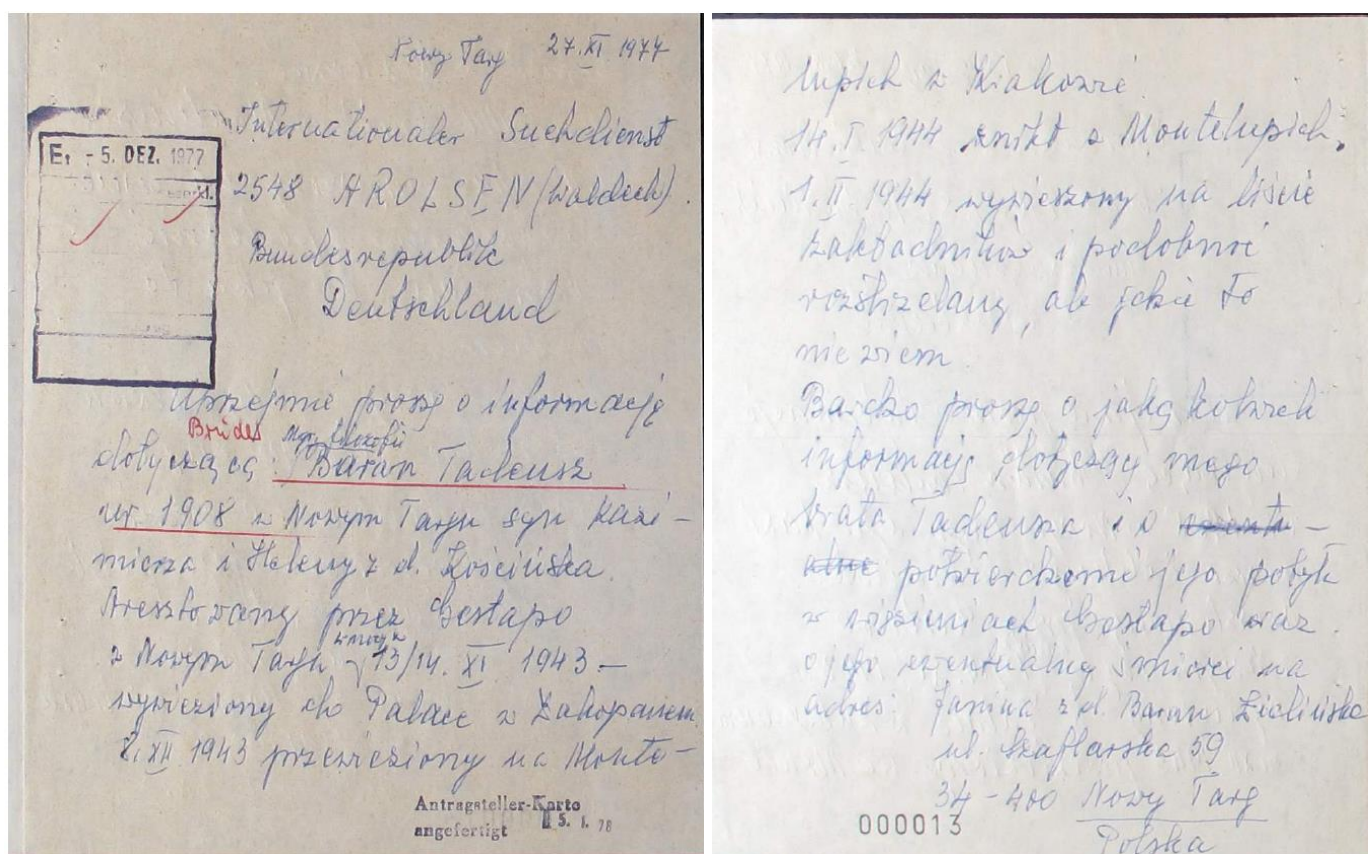 Nowy Targ 27.XI 1977
Internationaler Suchdienst
E. - 5. DEZ. 1977
2548 AROLSEN (Waldeck).
Bundesrepublik
Deutschland
Uprzejmie proszę o informację
Bruder Mgr. filozofii
dotyczącą: Baran Tadeusz
ur 1908 w Nowym Targu syn Kazi-
mierza i Heleny z d. Kościńska.
Aresztowany przez Gestapo
w nocy
w Nowym Targu 13/14. XI 1943 –
wywieziony do Palace w Zakopanem
8.XII 1943 przewieziony na Monte-
Antragsteller-Karte
angefertigt 5. 1. 78
lupich w Krakowie.
14.I 1944 znikł z Montelupich,
1.II. 1944 wywieszony na liście
zakładników i podobnie
rozstrzelany, ale gdzie to
nie wiem.
Bardzo proszę o jakąkolwiek
informację dotyczącą mego
brata Tadeusza i o
potwierdzenie jego pobytu
w więzieniach Gestapo oraz
o jego ewentualnej śmierci na
adres: Janina z d. Baran Zielińska
ul. Szaflarska 59
34-400 Nowy Targ
000013
Polska